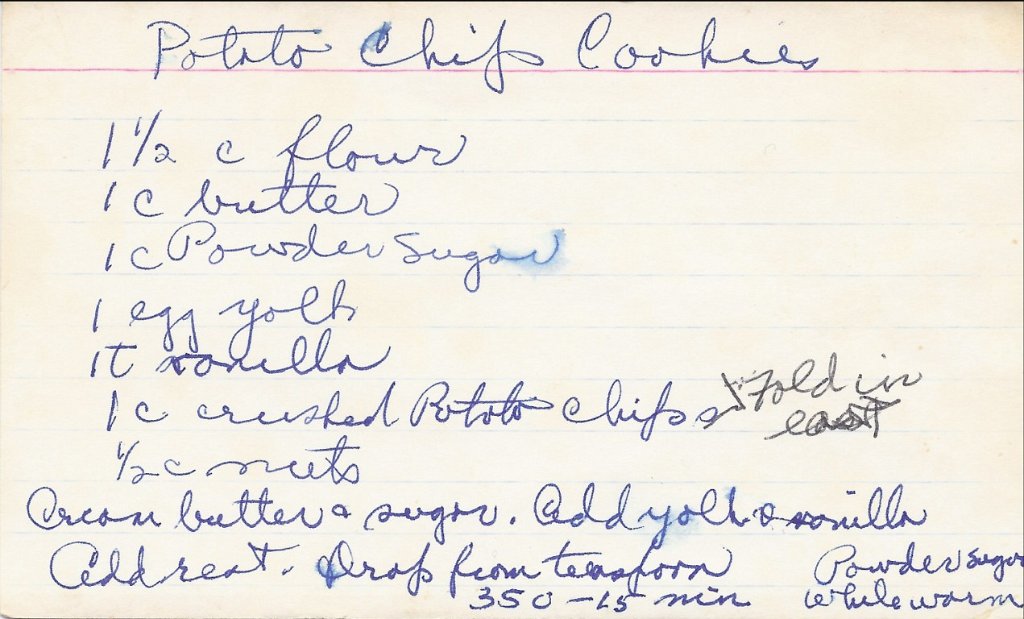 Potato Chips Cookies
1 1/2 c flour
1 c butter
1 c Powder Sugar
1 egg yolk
1t vanilla
1 c crushed Potato chips Fold in
last
1/2 c nuts
Cream butter & sugar. Add yolk & vanilla
Add rest. Drop from teaspoon
350 - 15 min
Powder sugar
while warm